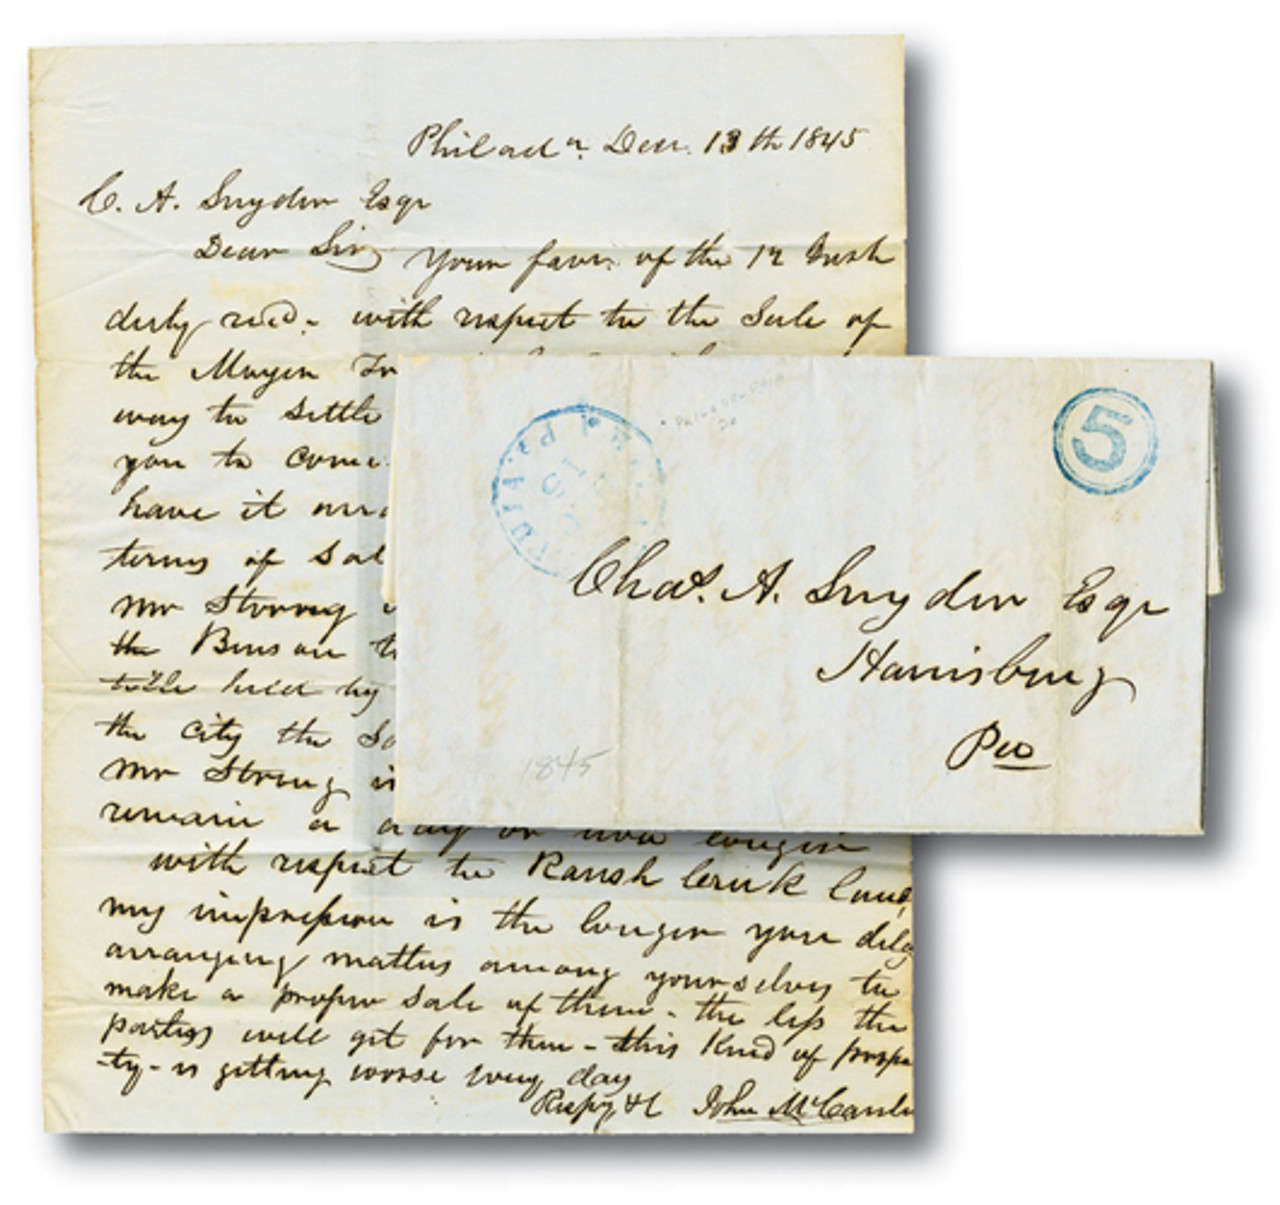 Philada. Decr. 13th 1845
C. A. Snyder Esqr
Dear Sir Your favr. of the 12 Inst
duly recd - with respect to the Sale of
the Moyer
way to Settle
you to come
have it
terms of
Mr Strong
the
title held by
the city the
Mr Strong
remain a day or two longer
with respect to Raush Creek
my impression is the longer you
arranging matters among yourselves to
make a proper Sale of them - the less the
parties will get for them - this Kind of prope
-ty - is getting worse every day
Respy &c John McCanles
PHILADELPHIA
5
Chas. A. Snyder Esqr
Harrisburg
Pa
1845